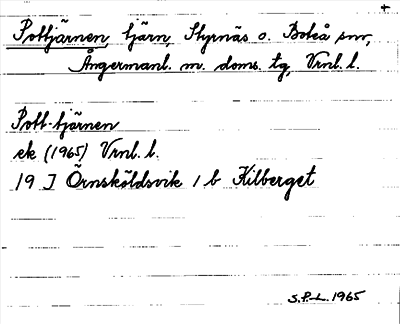 +
Pottjärnen, tjärn, Styrnäs o. Boteå snr,
Ångermanl. m. doms. tg, Vrnl. l.
Pott-tjärnen
ek (1965) Vrnl. l.
19 J Örnsköldsvik 1 b Kilberget
S.P-L. 1965